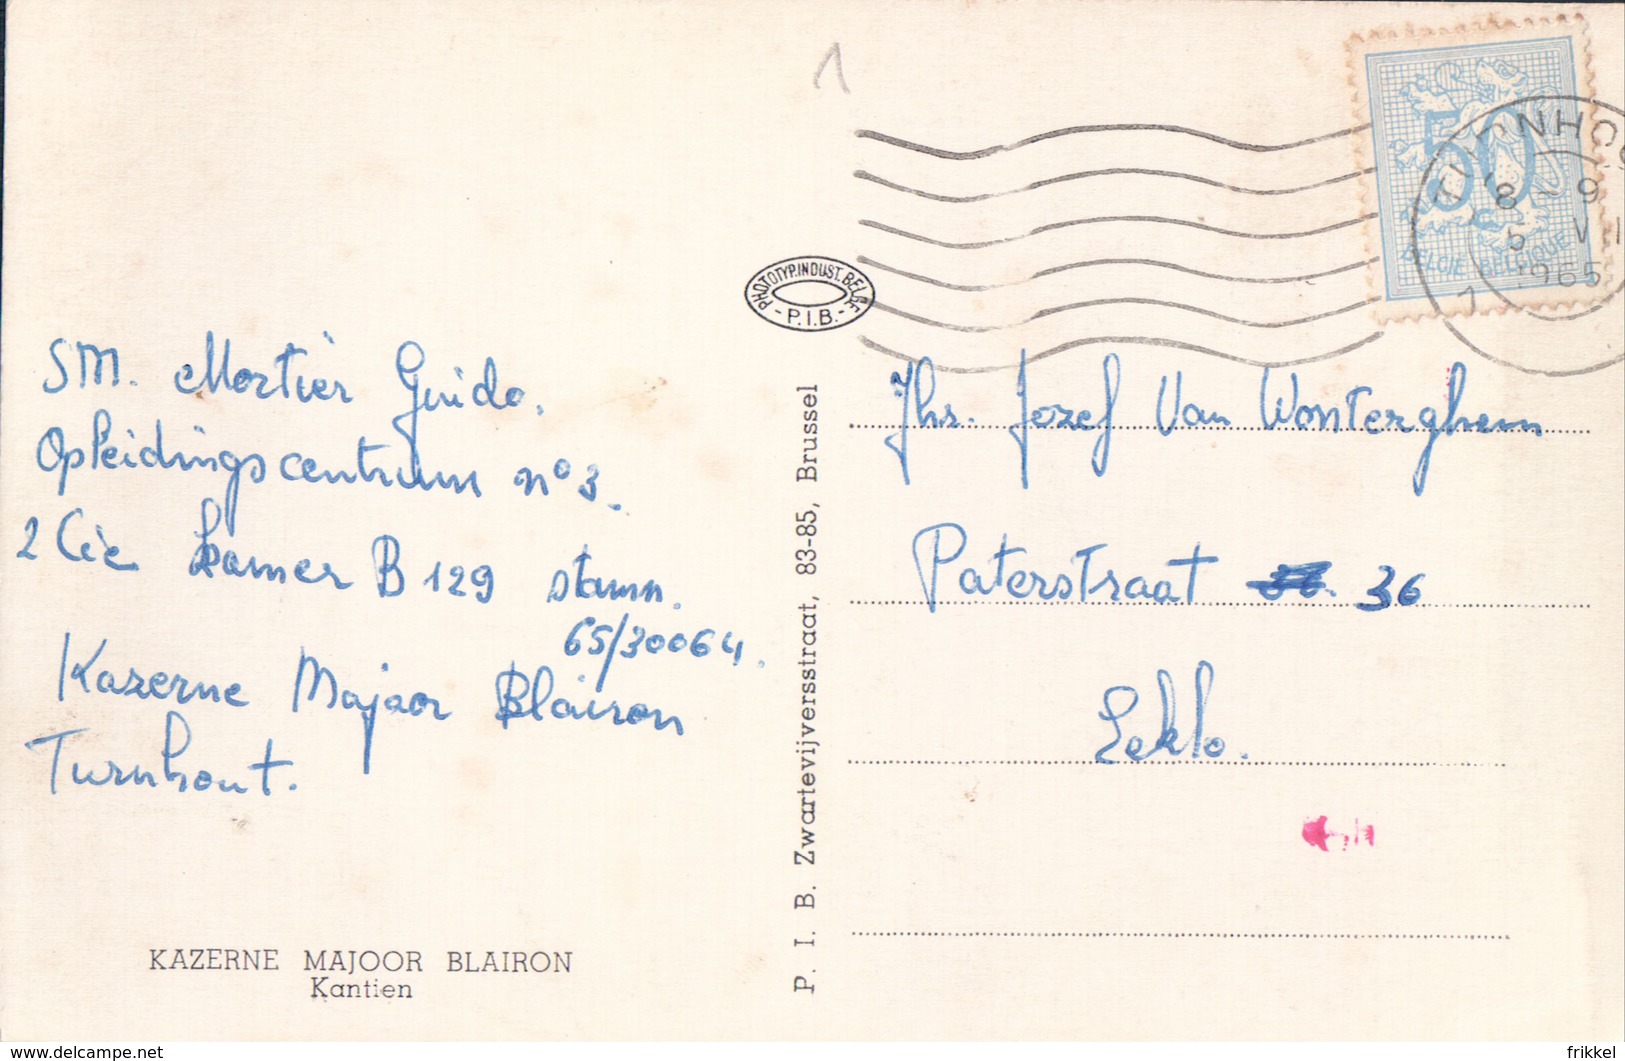 1
TURNHO
8 - 9
5 VI
1965
1
50
BELGIE BELGIQUE
PHOTOTYP.INDUST.BELGE
- P.I.B. -
SM. Mortier Guido.
Opleidingscentrum n° 3.
2 Cie kamer B 129 stamn.
65/30064.
Kazerne Majoor Blairon
Turnhout.
KAZERNE MAJOOR BLAIRON
Kantien
P. I. B. Zwartevijversstraat, 83-85, Brussel
Jhr. Jozef Van Wonterghem
Paterstraat 36
Eeklo.
delcampe.net
frikkel